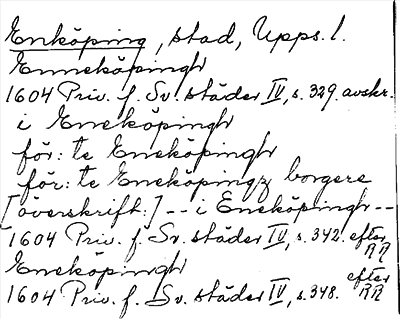 Enköping, stad, Upps. l.
Enneköpingh
1604 Priv. f. Sv. städer IV, s. 329. avskr.
i Eneköpingh
för: te Eneköpingh
för: te Eneköpingz borgere
[överskrift:] -- i Eneköpingh --
1604 Priv. f. Sv. städer IV, s. 342. efter RR
Eneköpingh
1604 Priv. f. Sv. städer IV, s. 348. efter RR